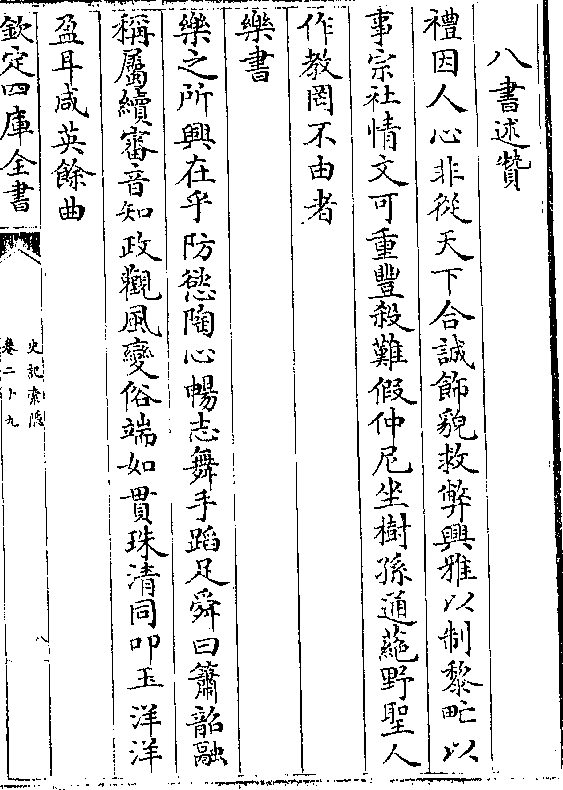 八書述贊
禮因人心非從天下合誠飾貌救弊興雅以制黎甿以
事宗社情文可重豐殺難假仲尼坐樹孫通蕝野聖人
作教罔不由者
樂書
樂之所興在乎防慾陶心暢志舞手蹈足舜曰簫韶融
稱屬續審音知政觀風變俗端如貫珠清同叩玉洋洋
盈耳咸英餘曲
欽定四庫全書
史記索隱
卷二十九
八